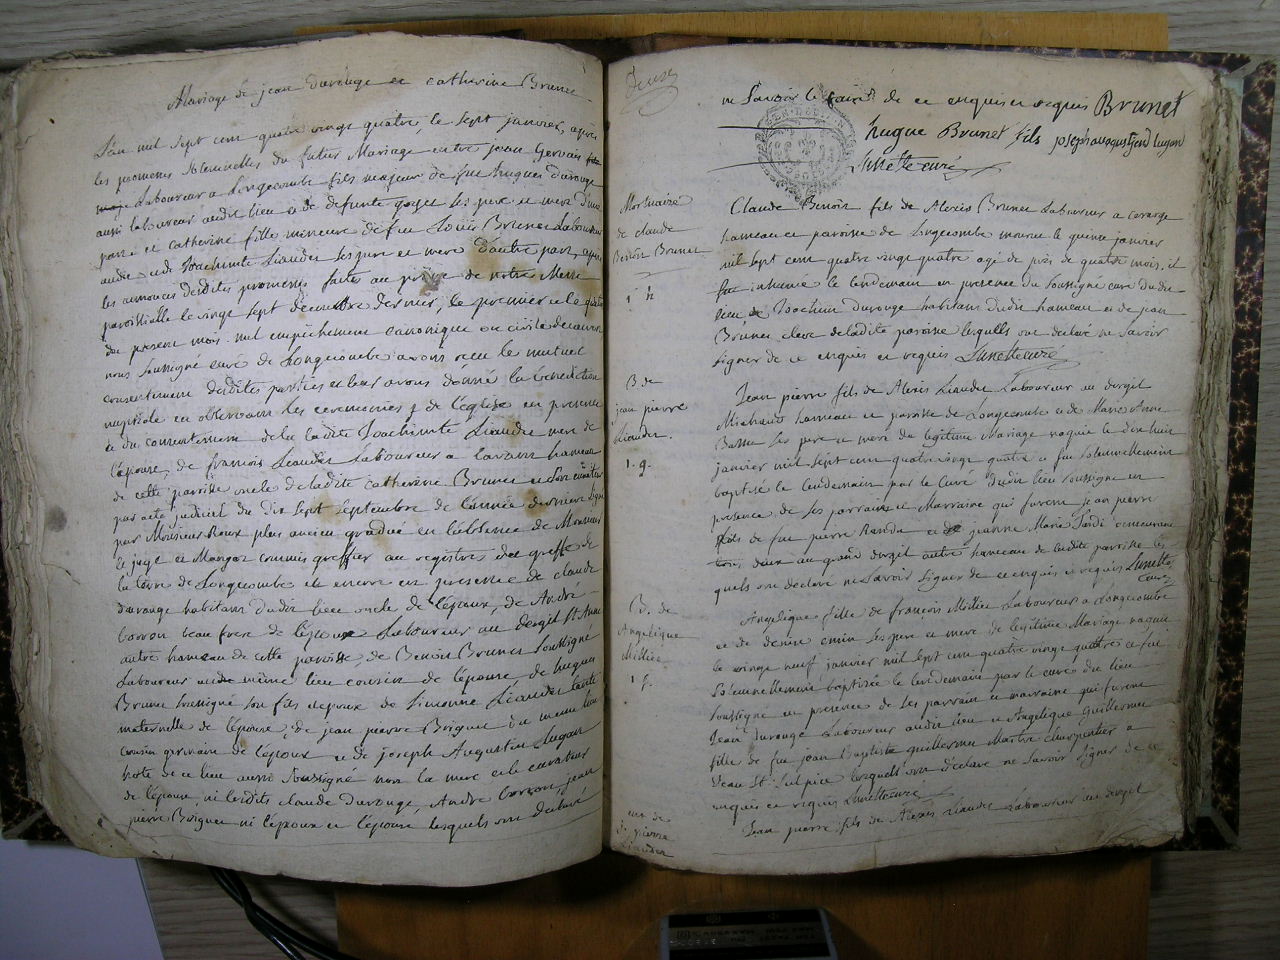 Mariage de jean durouge et catherine Brunet
L'an mil sept cent quatre vingt quatre, le sept janvier, après
les promesses solennelles du futur Mariage entre jean Gervais
Laboureur a Longecombe fils majeur de feu hugues durouge
aussi laboureur audit lieu et de defunte ses pere et mere d'une
part et catherine fille mineure de feu Loüis Brunet Laboureur
audit et de Joachimte Liauder ses pere et mere d'autre part, après
les annonces desdites promesses faites au prône de notre Messe
paroissialle le vingt sept decembre dernier, le premier et le quatre
du present mois. nul empêchement canonique ou civil decouvert
nous soussigné curé de Longecombe avons recu le mutuel
consentement desdites parties et leur avons donné la bénédiction
nuptiale en observant les ceremonies de l'église en presence
et du consentement de la ladite Joachimte Liauder mere de
l'épouse, de francois Liauder Laboureur a Lavant hameau
de cette paroisse oncle de ladite catherine Brunet et son curateur
par acte judiciel du dix sept septembre de l'année derniere signé
par Monsieur Roux plus ancien gradué en l'absence de Monsieur
le juge et Mangoz commis greffier au registre du greffe de
la terre de Longecombe et encore en presence de claude
durouge habitant dudit lieu oncle de l'époux, de André
borron beau frere de l'époux Laboureur au dergit St Anne
autre hameau de cette paroisse, de Benoit Brunet soussigné
Laboureur audit même lieu cousin de l'épouse, de hugues
Brunet soussigné son fils époux de Simonne Liauder tante
maternelle de l'épouse, de jean pierre Boignet du meme lieu
cousin germain de l'époux et de joseph Augustin Lugon
hote de ce lieu aussi soussigné non la mere et le curateur
de l'épouse, ni lesdits claude Durouge, Andre borron, jean
pierre Boignet ni l'époux et l'épouse lesquels ont declaré
Deux
ne Savoir le faire de ce enquis et requis Brunet
hugue Brunet fils joseph augustin lugon
Lunette curé
Mortuaire
de claude
Benoit Brunet
Claude Benoit fils de Alexis Brunet Laboureur a
hameau et paroisse de Longecombe mourut le quinze janvier
mil sept cent quatre vingt quatre agé de près de quatre mois, il
fut inhumé le lendemain en presence du soussigné curé dudit
lieu de Joachim durouge habitant dudit hameau et de jean
Brunet clerc de ladite paroisse lesquels ont declaré ne savoir
signer de ce enquis et requis Lunette curé
B. de
jean pierre
Liauder.
1. g.
Jean pierre fils de Alexis Liauder Laboureur au dergit
Michaud hameau et paroisse de Longecombe et de Marie Anne
ses pere et mere de legitime Mariage naquit le dix huit
janvier mil sept cent quatre vingt quatre et fut solennellement
baptisé le lendemain par le curé dudit lieu soussigné en
presence de ses parrain et Marraine qui furent jean pierre
fils de feu pierre et de jeanne Marie demeurant
tous deux au grand dergit autre hameau de ladite paroisse les
quels ont declaré ne savoir signer de ce enquis et requis Lunette
curé
B. de
Angelique
Millier
1 f.
Angelique fille de francois Millier Laboureur a Longecombe
et de denise emin ses pere et mere de legitime Mariage naquit
le vingt neuf janvier mil sept cent quatre vingt quattre et fut
solennellement baptisée le lendemain par le curé du lieu
soussigné en presence de ses parrain et marraine qui furent
Jean durougé Laboureur audit lieu et Angelique Guillermin
fille de feu jean Baptiste guillermin Maitre charpentier a
St Sulpice lesquels ont declaré ne savoir signer de ce
enquis et requis Lunette curé
de
J. pierre
Liauder
Jean pierre fils de Alexis Liauder Laboureur au dergit